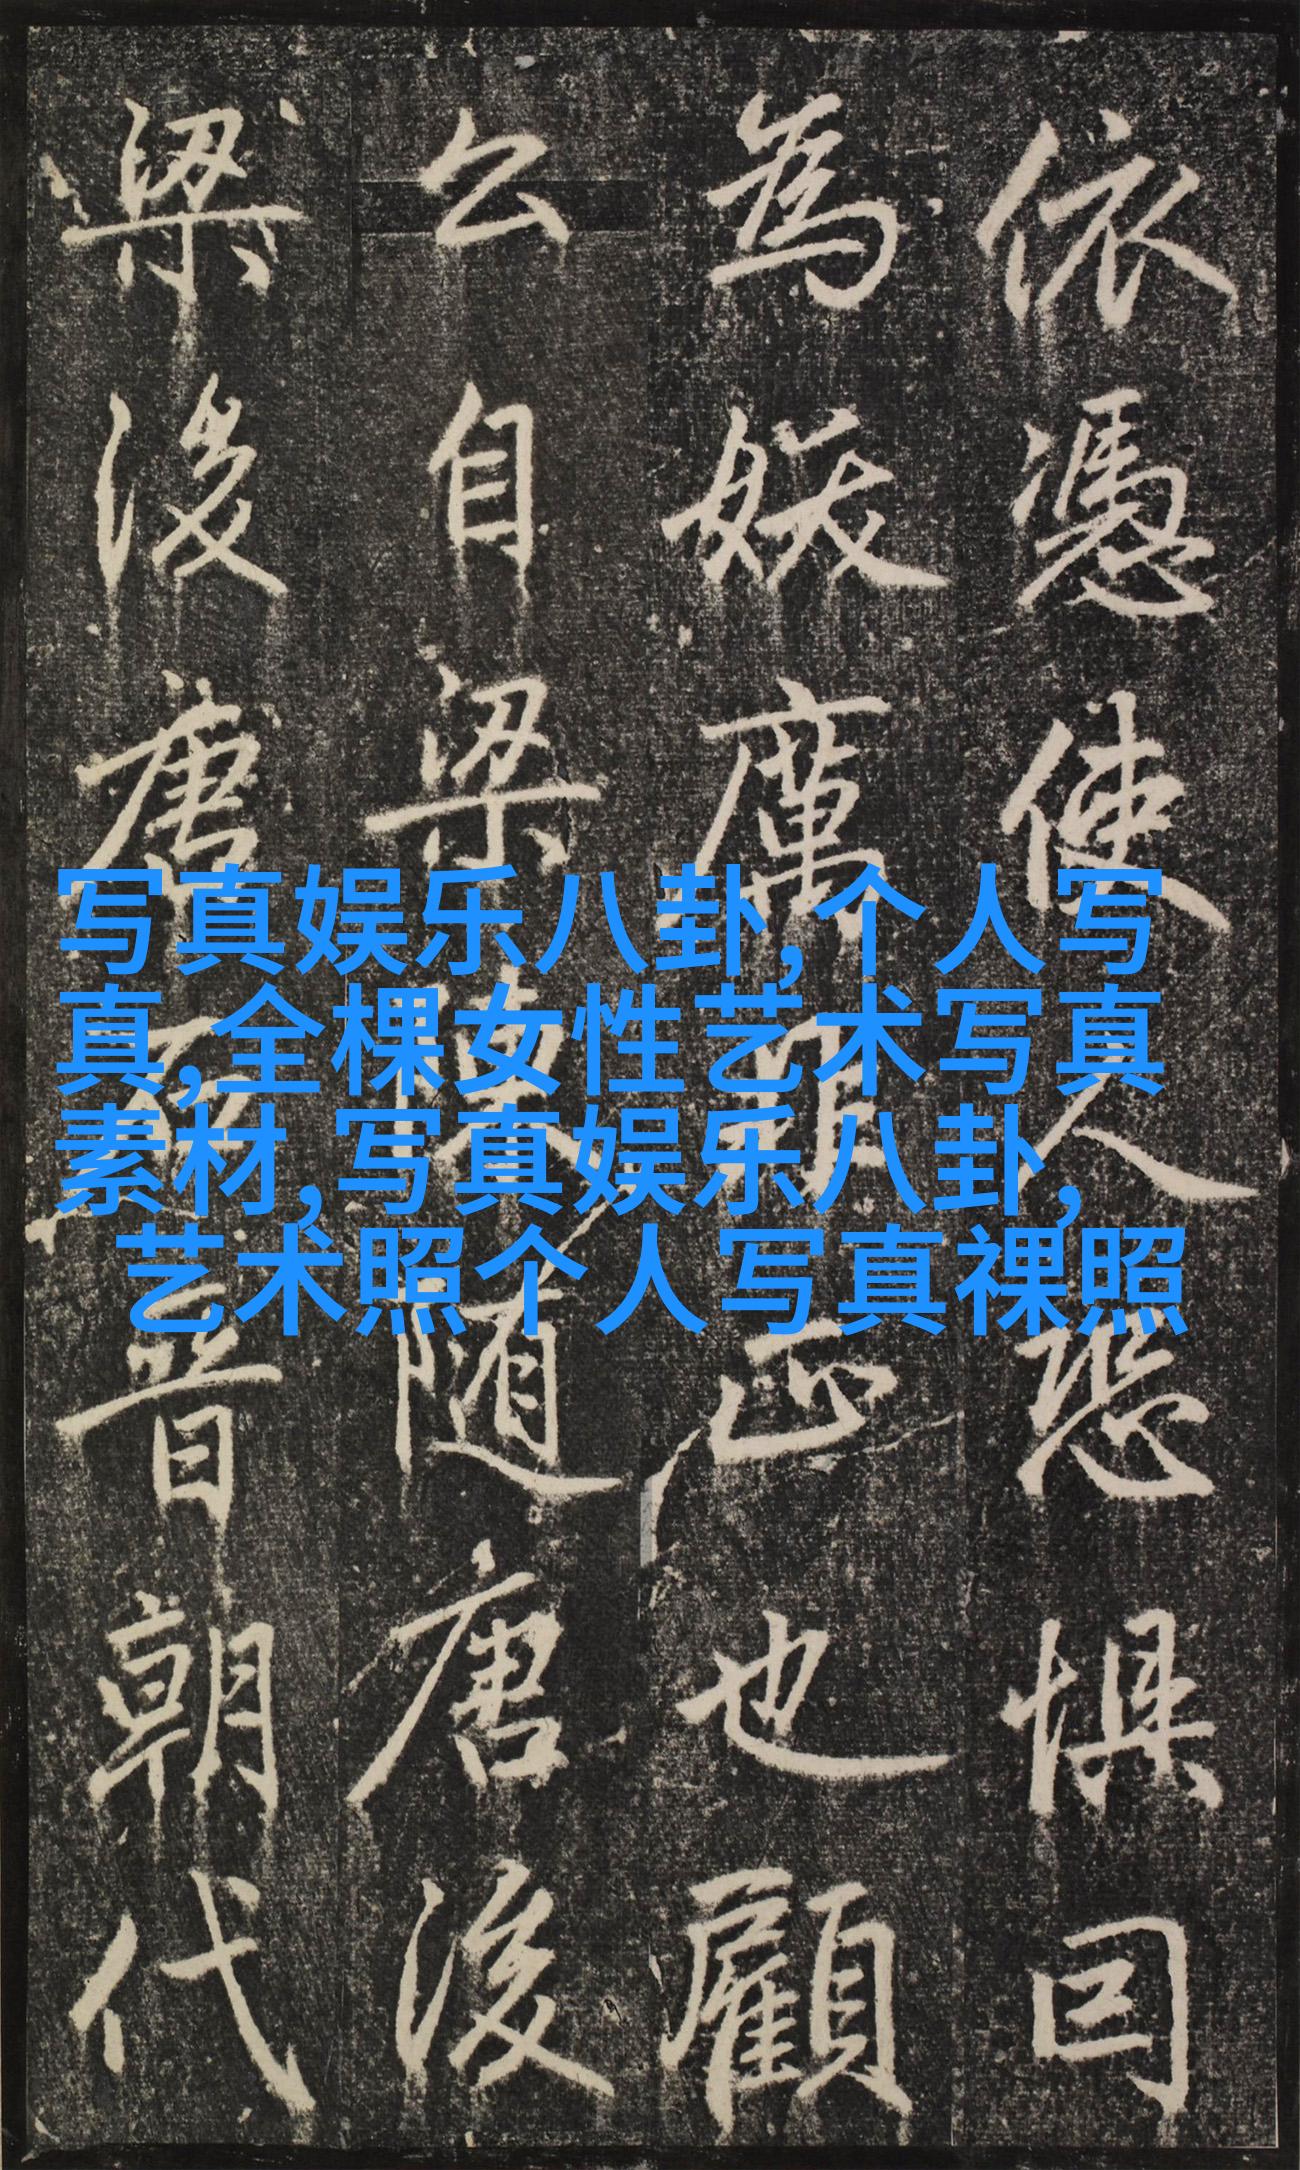 依憑使人恐懼囙
為妖厲正也顧
公自梁陳随唐後
梁後唐晉朝代
写真娱乐八卦,个人写
真,全棵女性艺术写真
素材,写真娱乐八卦,
艺术照个人写真祼照